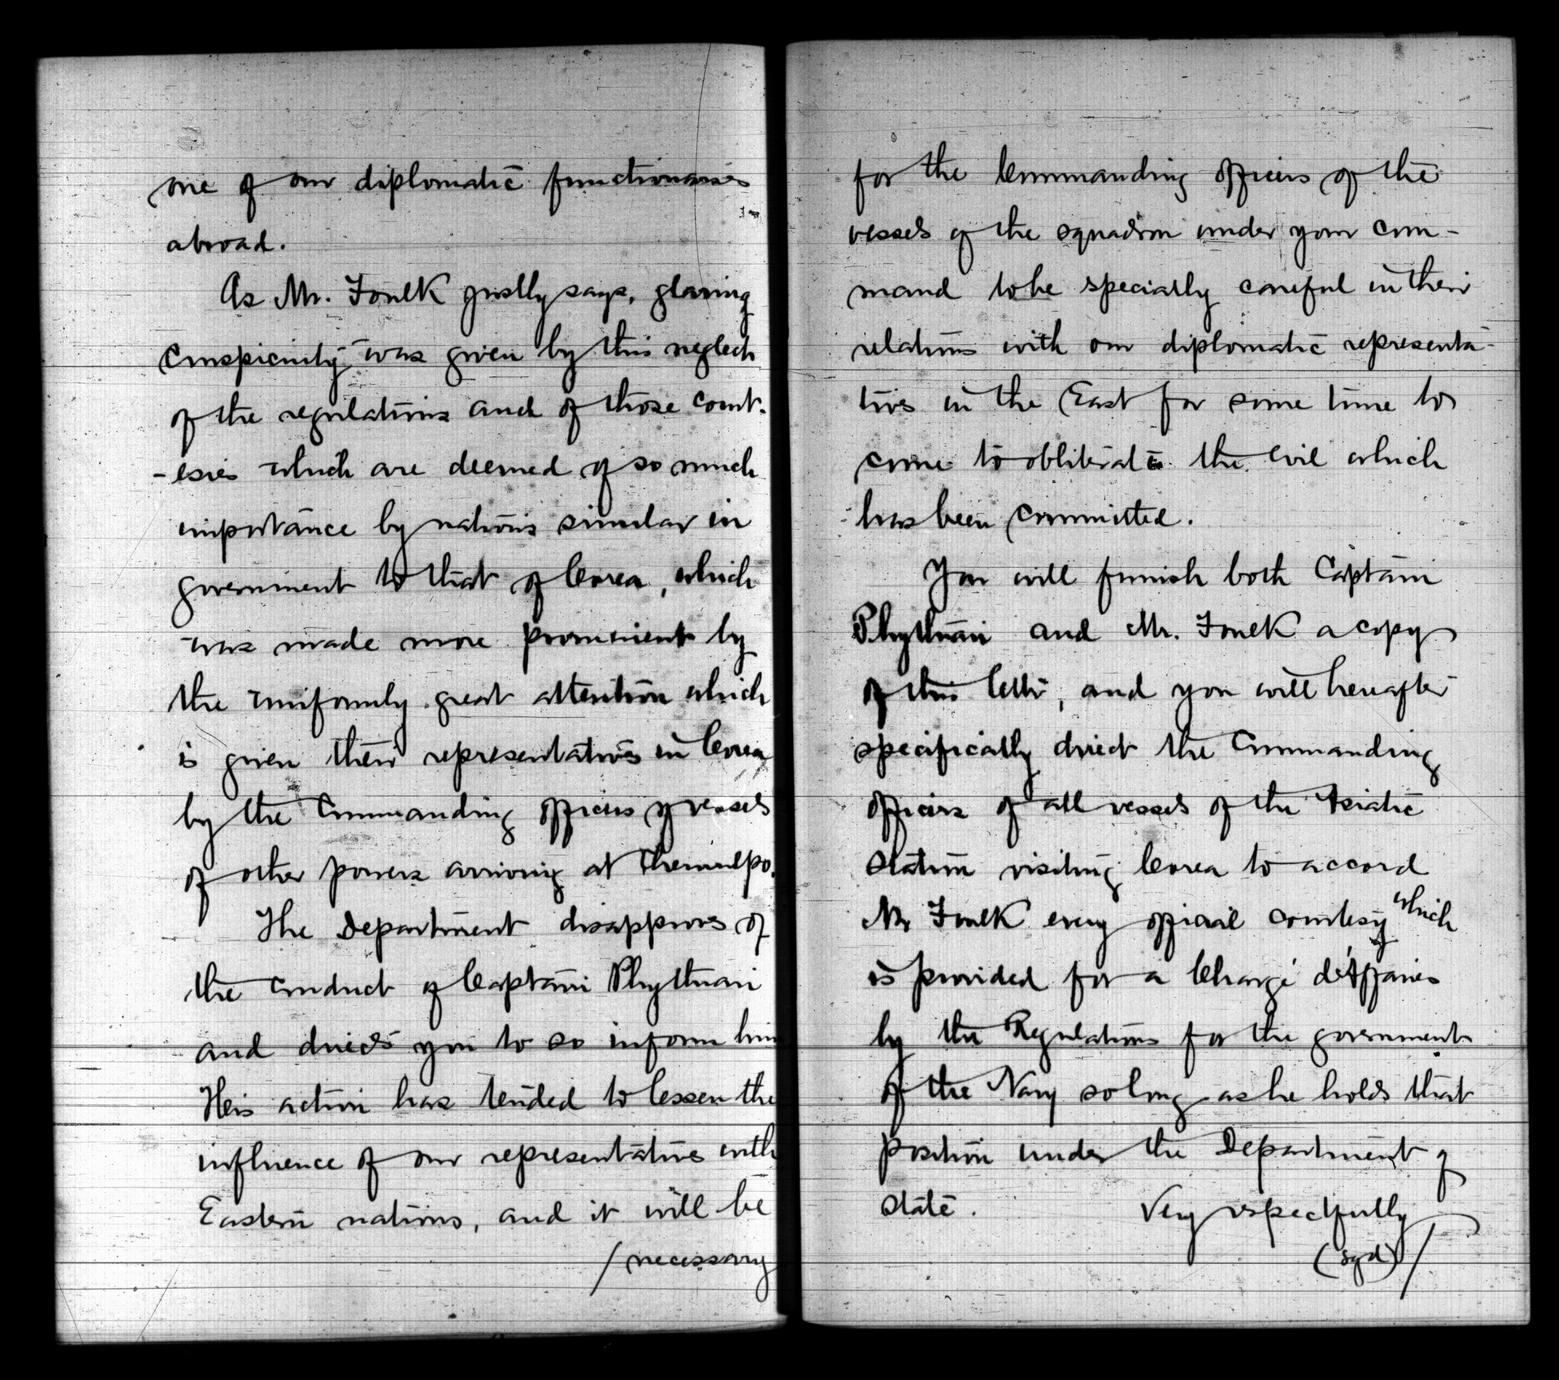 one of our diplomatic functionaries
abroad.
As Mr. Foulk justly says, glaring
conspicuity was given by this neglect
of the regulations and of those court-
-esies which are deemed of so much
importance by nations similar in
government to that of Corea, which
was made more prominent by
the uniformly great attention which
is given their representatives in Corea
by the Commanding officers of vessels
of other powers arriving at Chemulpo.
The Department disapproves of
the conduct of Captain Phythian
and directs you to so inform him
His action has tended to lessen the
influence of our representative with
Eastern nations, and it will be
/necessary
for the Commanding officers of the
vessels of the squadron under your com-
mand to be specially careful in their
relations with our diplomatic representa-
tives in the East for some time to
come to obliterate the evil which
has been committed.
You will furnish both Captain
Phythian and Mr. Foulk a copy
of this letter, and you will hereafter
specifically direct the Commanding
officers of all vessels of the Asiatic
Station visiting Corea to accord
Mr Foulk every official courtesy which
is provided for a Chargé d'Affaires
by the Regulations for the government
of the Navy so long as he holds that
position under the Department of
State. Very respectfully
(sgd) /